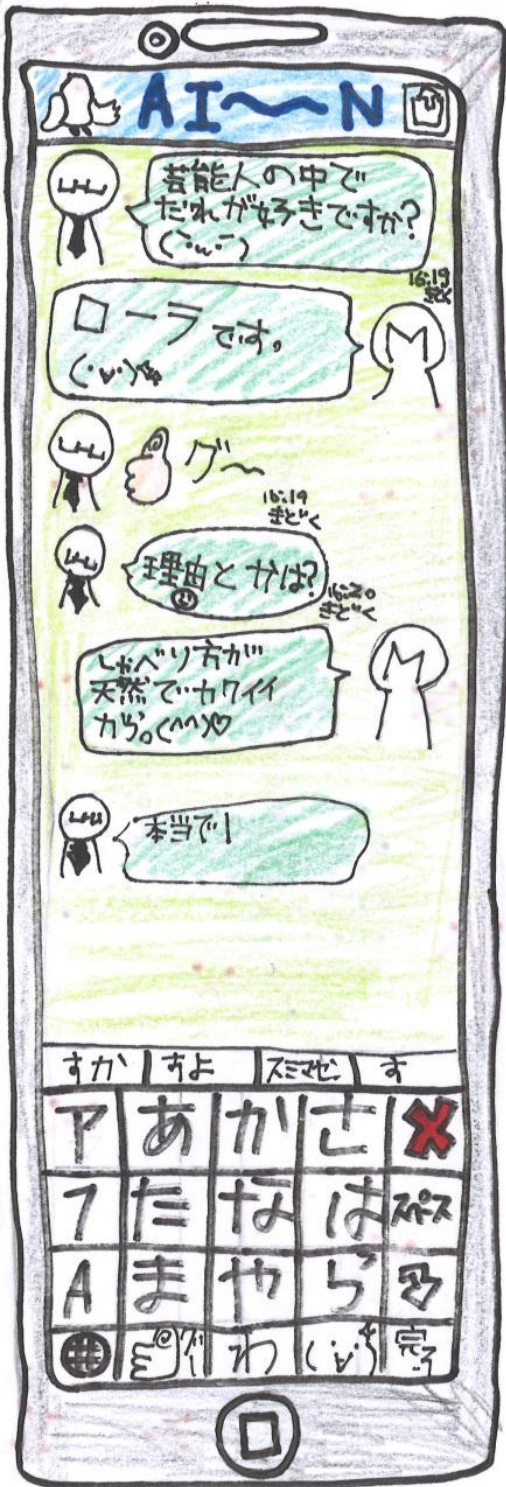 AI〜〜N
芸能人の中で
だれが好きですか?
(￣・ω・￣)
16:19
きどく
ローラです。
(・∀・)
グ〜
16:19
きどく
理由とかは?
16:20
きどく
しゃべり方が
天然でカワイイ
から。(^^)♡
本当で|
すか すよ スミマセン す
ア あ か さ X
7 た な は スペース
A ま や ら
グー わ (・∀・) 完了